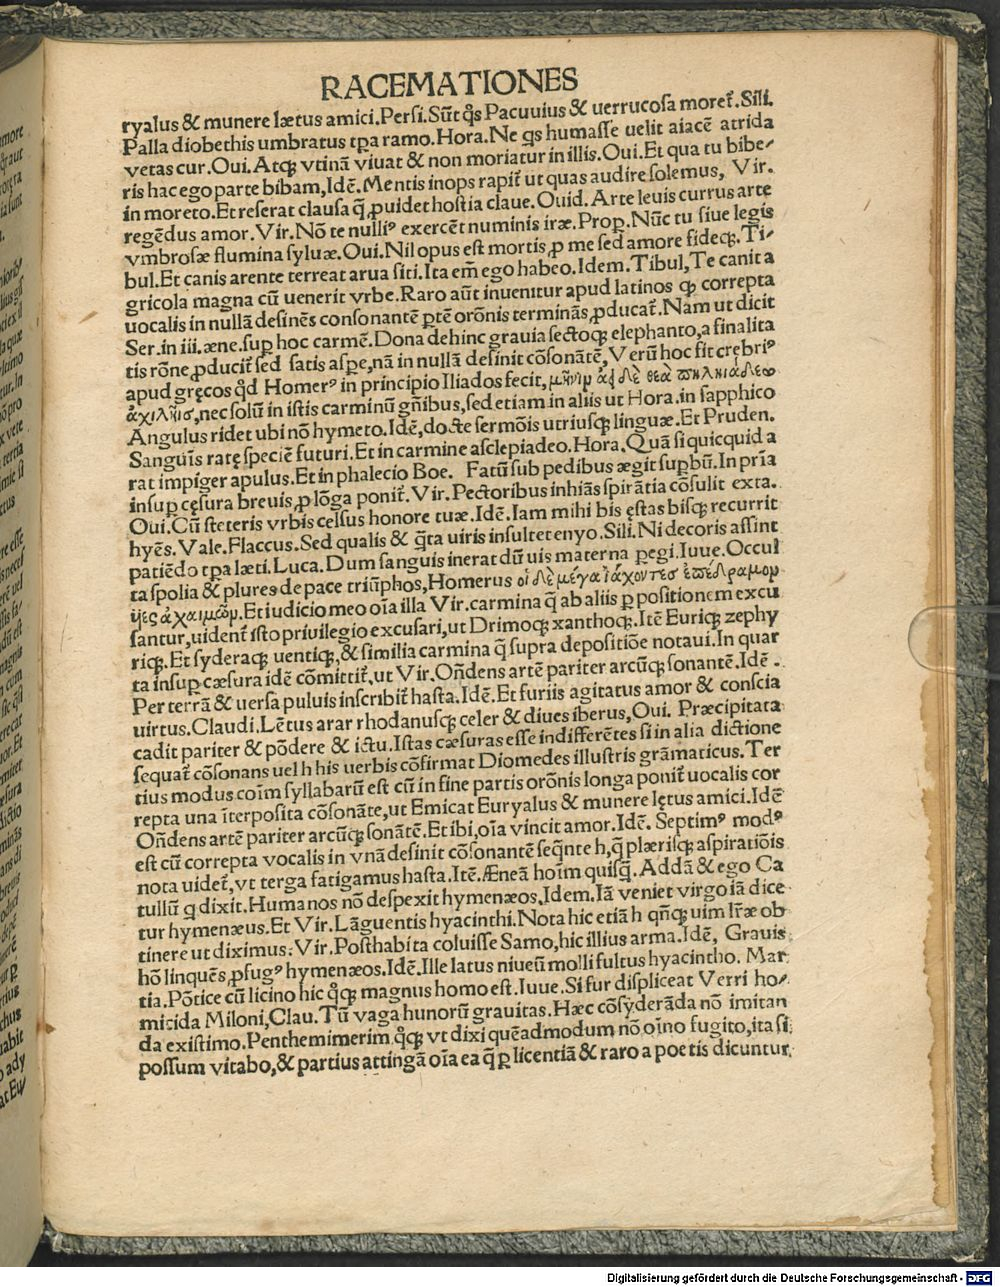 RACEMATIONES
ryalus & munere lætus amici. Persi. Sūt q̄s Pacuuius & uerrucosa moret̄. Sili.
Palla diobethis umbratus tp̄a ramo. Hora. Ne q̇s humasse uelit aiacē atrida
vetas cur. Oui. Atq; vtinā viuat & non moriatur in illis. Oui. Et qua tu bibe/
ris hac ego parte bibam, Idē. Mentis inops rapit̄ ut quas audire solemus, Vir.
in moreto. Et reserat clausa q̄ ꝓuidet hostia claue. Ouid. Arte leuis currus arte
regēdus amor. Vir. Nō te nulliꝰ exercēt numinis iræ. Prop. Nūc tu siue legis
vmbrosæ flumina syluæ. Oui. Nil opus est mortis ꝓ me sed amore fideq;. Ti/
bul. Et canis arente terreat arua siti. Ita em̄ ego habeo. Idem. Tibul, Te canit a
gricola magna cū uenerit vrbe. Raro aūt inuenitur apud latinos q; correpta
uocalis in nullā desinēs consonantē ꝑtē orōnis terminās ꝓducat̄. Nam ut dicit
Ser. in iii. æne. suꝑ hoc carmē. Dona dehinc grauia sectoq; elephanto, a finalita
tis rōne ꝓducit̄ sed satis asꝑe, nā in nullā desinit cōsonātē, Verū hoc fit crębriꝰ
apud gręcos q̄d Homerꝰ in principio Iliados fecit, μῆνιν ἄειδε θεὰ πηλνιάδεω
ἀχιλῆισ, nec solū in istis carminū gn̄ibus, sed etiam in aliis ut Hora. in sapphico
Angulus ridet ubi nō hymeto. Idē, docte sermōis utriusq; linguæ. Et Pruden.
Sanguīs ratę speciē futuri. Et in carmine asclepiadeo. Hora. Quā si quicquid a
rat impiger apulus. Et in phalecio Boe. Fatū sub pedibus ægit suꝑbū. In prīa
insuꝑ cęsura breuis ꝓ lōga ponit̄. Vir. Pectoribus inhiās spirātia cōsulit exta.
Oui. Cū steteris vrbis celsus honore tuæ. Idē. Iam mihi bis ęstas bisq; recurrit
hyēs. Vale. Flaccus. Sed qualis & q̄ta uiris insultet enyo. Sili. Ni decoris assint
patiēdo tp̄a læti. Luca. Dum sanguis inerat dū uis materna ꝑegi. Iuue. Occul
ta spolia & plures de pace triūphos, Homerus οἱ δὲ μέγα ἰάχοντεσ ἐπέδραμον
ῆες ἀχαιμῶν. Et iudicio meo oīa illa Vir. carmina q̄ ab aliis ꝑ positionem excu
santur, uident̄ isto priuilegio excusari, ut Drimoq; xanthoq;. Itē Euriq; zephy
riq;. Et syderaq; uentiq;, & similia carmina q̄ supra depositiōe notaui. In quar
ta insuꝑ cæsura idē cōmittit̄, ut Vir. On̄dens artē pariter arcūq; sonantē. Idē.
Per terrā & uersa puluis inscribit̄ hasta. Idē. Et furiis agitatus amor & conscia
uirtus. Claudi. Lētus arar rhodanusq; celer & diues iberus, Oui. Præcipitata
cadit pariter & pōdere & ictu. Istas cæsuras esse indifferētes si in alia dictione
sequat̄ cōsonans uel h his uerbis cōfirmat Diomedes illustris grāmaticus. Ter
tius modus coīm syllabarū est cū in fine partis orōnis longa ponit̄ uocalis cor
repta una īterposita cōsonāte, ut Emicat Euryalus & munere lętus amici. Idē
On̄dens artē pariter arcūq; sonātē. Et ibi, oīa vincit amor. Idē. Septimꝰ modꝰ
est cū correpta vocalis in vnā desinit cōsonantē seq̄nte h, q̄ plærisq; aspiratiōis
nota uidet̄, vt terga fatigamus hasta. Itē. Æneā hoīm quisq̄. Addā & ego Ca
tullū q̇ dixit. Humanos nō despexit hymenæos, Idem. Iā veniet virgo iā dice
tur hymenæus. Et Vir. Lāguentis hyacinthi. Nota hic etiā h qn̄q; uim lr̄æ ob
tinere ut diximus. Vir. Posthabita coluisse Samo, hic illius arma. Idē, Grauis
hō linquēs ꝓfugꝰ hymenæos. Idē. Ille latus niueū molli fultus hyacintho. Mar
tia. Pōtice cū licino hic q̄q; magnus homo est. Iuue. Si fur displiceat Verri ho/
micida Miloni, Clau. Tū vaga hunorū grauitas. Hæc cōsyderāda nō imitan
da existimo. Penthemimerim q̄q; vt dixi quēadmodum nō oīno fugito, ita si
possum vitabo, & partius attingā oīa ea q̄ ꝑ licentiā & raro a poetis dicuntur,
Digitalisierung gefördert durch die Deutsche Forschungsgemeinschaft - DFG